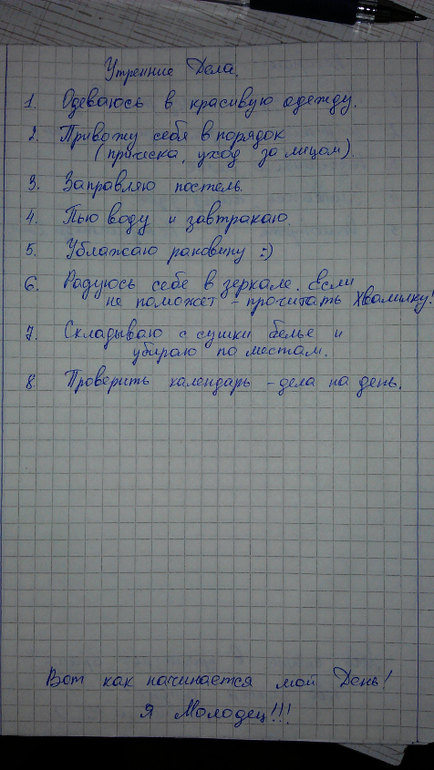 Утренние Дела.
1. Одеваюсь в красивую одежду.
2. Привожу себя в порядок
(прическа, уход за лицом).
3. Заправляю постель.
4. Пью воду и завтракаю.
5. Ублажаю раковину :)
6. Радуюсь себе в зеркале. Если
не поможет - прочитать Хвалилку!
7. Складываю с сушки белье и
убираю по местам.
8. Проверить календарь - дела на день.
Вот как начинается мой День!
Я Молодец!!!